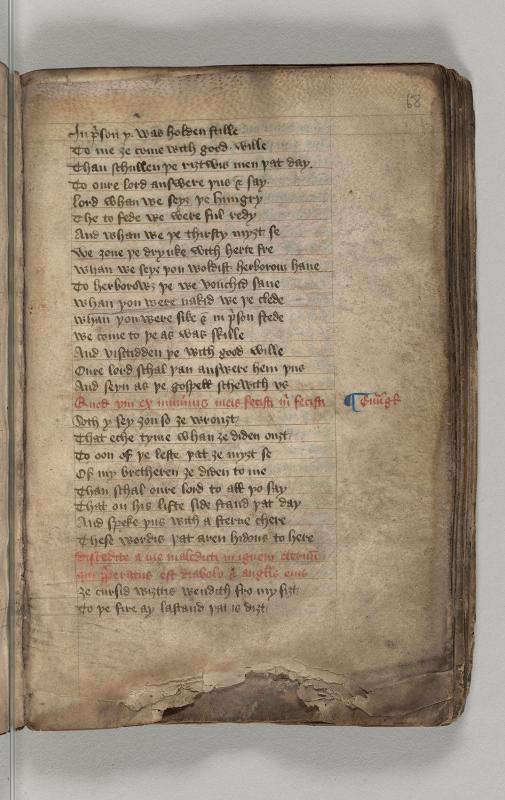 68
In pson y was holden stille
To me ȝe come with good wille
Than schullen þe riȝtwis men þat day
To oure lord answere þus & say
Lord whan we seyȝ þe hungry
The to fede we were ful redy
And whan we þe thirsty myȝt se
We ȝoue þe drynke with herte fre
Whan we seyȝ þou woldist herborow haue
To herborowȝ þe we vouchid saue
Whan þou were nakid we þe clede
Whan þou were sike & in pson stede
We come to þe as was skille
And visitidden þe with good wille
Oure lord schal þan answere hem þus
And seyn as þe gospell schewith vs
Quod vni ex minimis meis fecisti m fecisti
Soth y sey ȝou so ȝe wrouȝt
That eche tyme whan ȝe diden ouȝt
To oon of þe leste þat ȝe myȝt se
Of my bretheren ȝe diden to me
Than schal oure lord to all þo say
That on his lifte side stand þat day
And speke þus with a sterne chere
These wordis þat aren hidous to here
Discedite a me maledicti in ignem eternu
qui pperatus est diabolo & anglis eius
Ȝe cursid wiȝtis wendith fro my siȝt
To þe fire ay lastand þat is diȝt